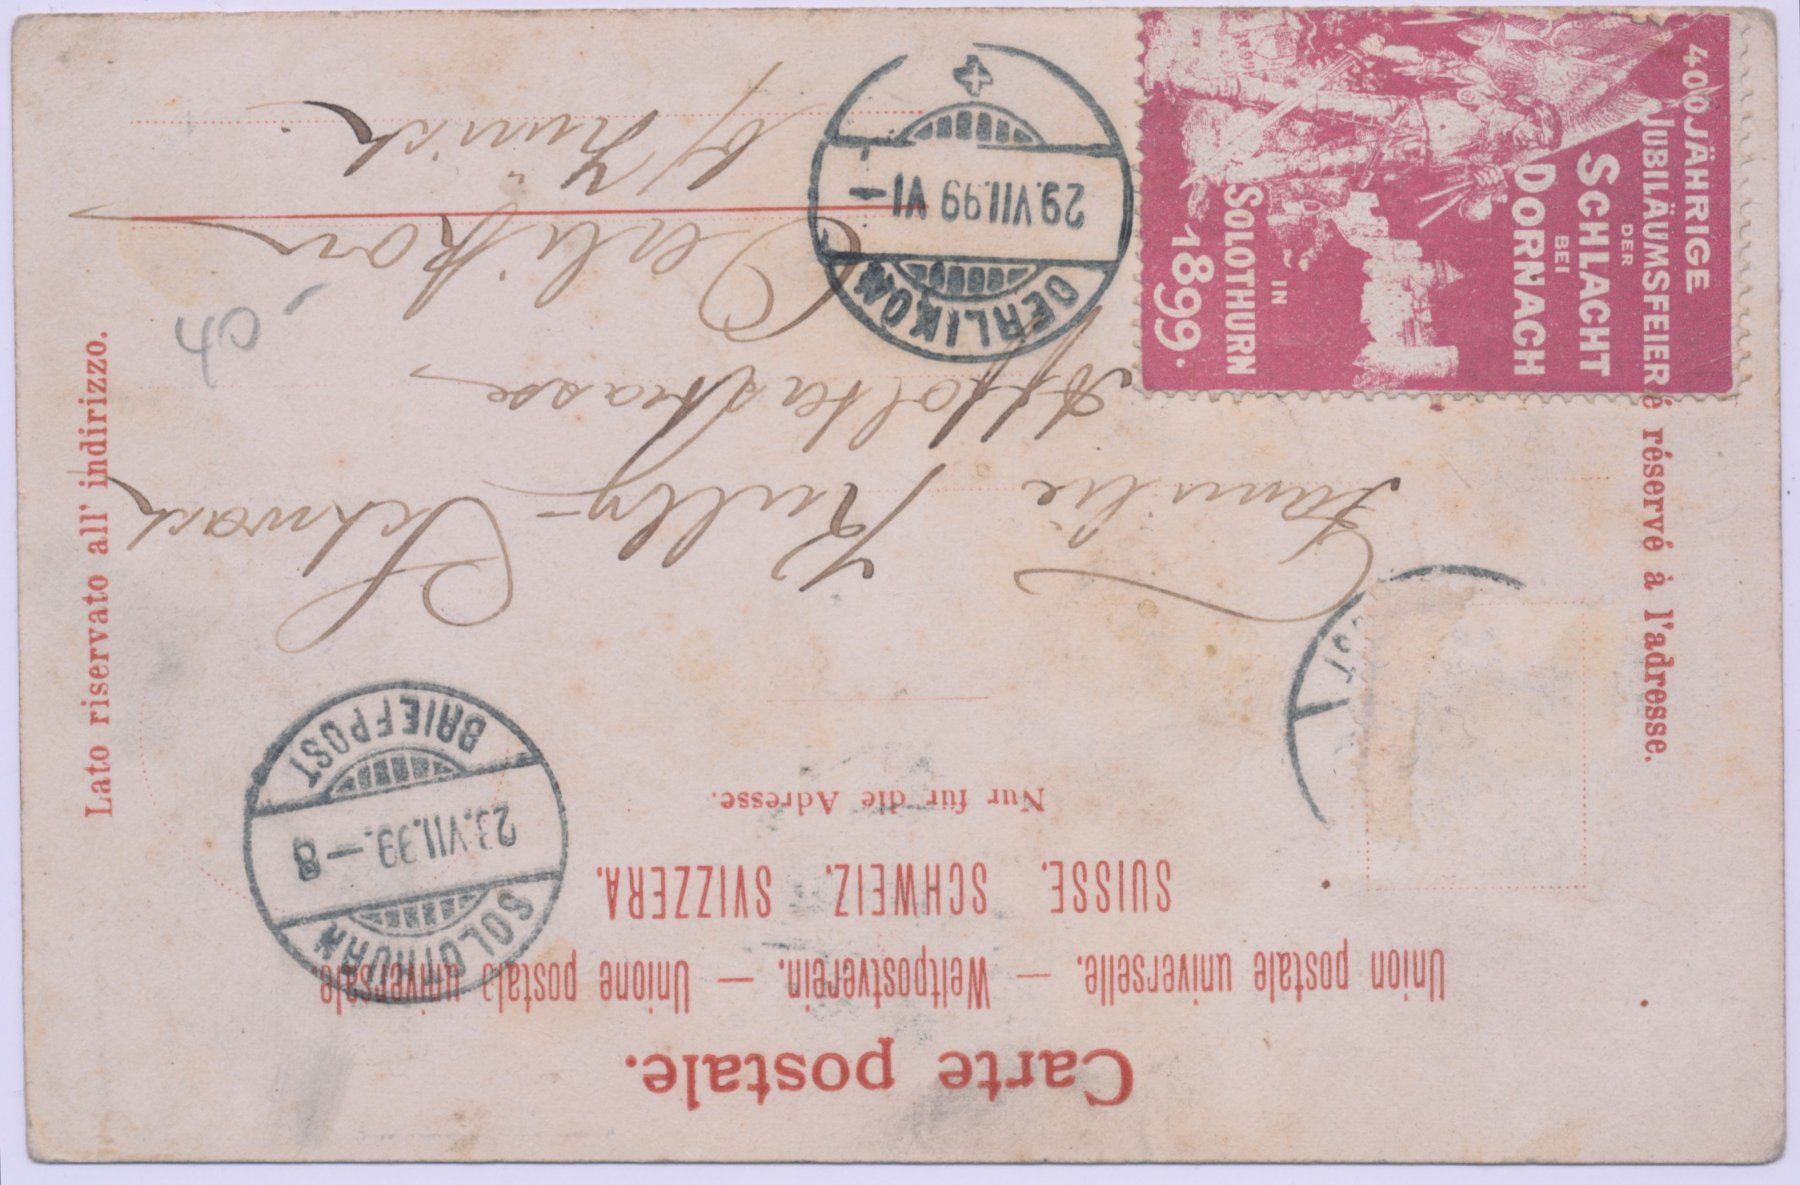 Carte postale.
Union postale universelle. — Weltpostverein. — Unione postale universale.
SUISSE. SCHWEIZ. SVIZZERA.
Nur für die Adresse.
é réservé à l'adresse.
Lato riservato all' indirizzo.
SOLOTHURN
23.VII.99.–8
BRIEFPOST
Familie Rully- Schwarz
Affolterstrasse
Oerlikon
b/ Zürich
OERLIKON
29.VII.99 VI–
ch
400JÄHRIGE
JUBILÄUMSFEIER
DER
SCHLACHT
BEI
DORNACH
IN
SOLOTHURN
1899.